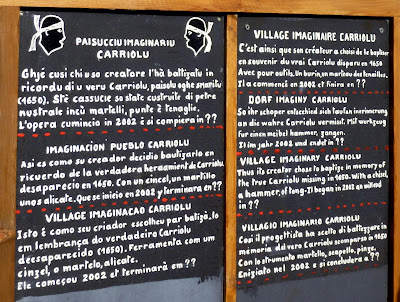 PAISUCCIU IMAGINARIU
CARRIOLU
Ghjé cusi chi u so creatore l'hà battizatu in
ricordu di u veru Carriolu, paisolu oghe smaritu
(1650). Ste cassucie so state custruite di petre
nustrale incù martelli, punte è tenaglie.
L'opera cumincio in 2002 è si compiera in ??
IMAGINACION PUEBLO CARRIOLU
Asi es como su creador decidio bautizarlo en
ricuerdo de la verdadera heradamint de Carriolu
desaparecio en 1650. Con un cincel, un martillo
unos alicate. Que se inicio en 2002 y terminara en ??
VILLAGE IMAGINACAO CARRIOLU
Isto é como seu criador escolheu par batizá-lo
em lembrança do verdadeiro Carriolu
deesaparecido (1650). Ferramenta com um
cinzel, o martelo, alicate.
Ele começou 2002 et terminará em ??
VILLAGE IMAGINAIRE CARRIOLU
C'est ainsi que son créateur a choisi de le baptiser
en souvenir du vrai Carriolu disparu en 1650
Avec pour outils. Un burin, un marteau des tenailles.
Il a commencé en 2002 et finira en ??
DORF IMAGINY CARRIOLU
So ihr schoper entschied sich taufen inerinnerung
an die wahre Carriolu vermisst. Mit werkzeug
fur einen meibel hammer, zangen.
Es im jahr 2002 und endet in ??
VILLAGINARY CARRIOLU
Thus its creator chose to baptize in memory of
the true Carriolu missing from 1650. With a chisel,
a hammer, of tong. It began in 2002 an will end
in ??
VILLAGIO IMAGINARIO CARRIOLU
Cosi il progettista ha scelto di battezzare in
memoria del vero Carriolu scomparso in 1650
Con lo strumento martello, scappello, pinze.
Enigiato nel 2002 e si concludera a ??